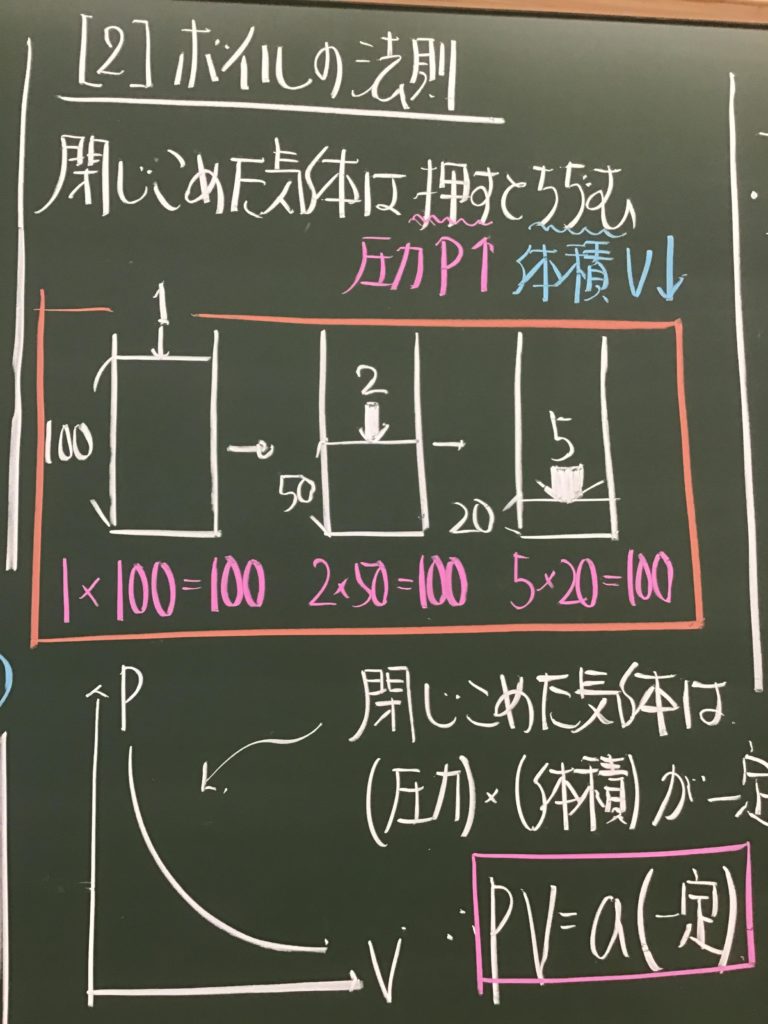 [2] ボイルの法則
閉じこめた気体は 押すとちぢむ
圧力P↑ 体積V↓
1
2
5
100
50
20
1×100=100 2×50=100 5×20=100
P
閉じこめた気体は
(圧力)×(体積)が一定
∴ PV=a(一定)
V